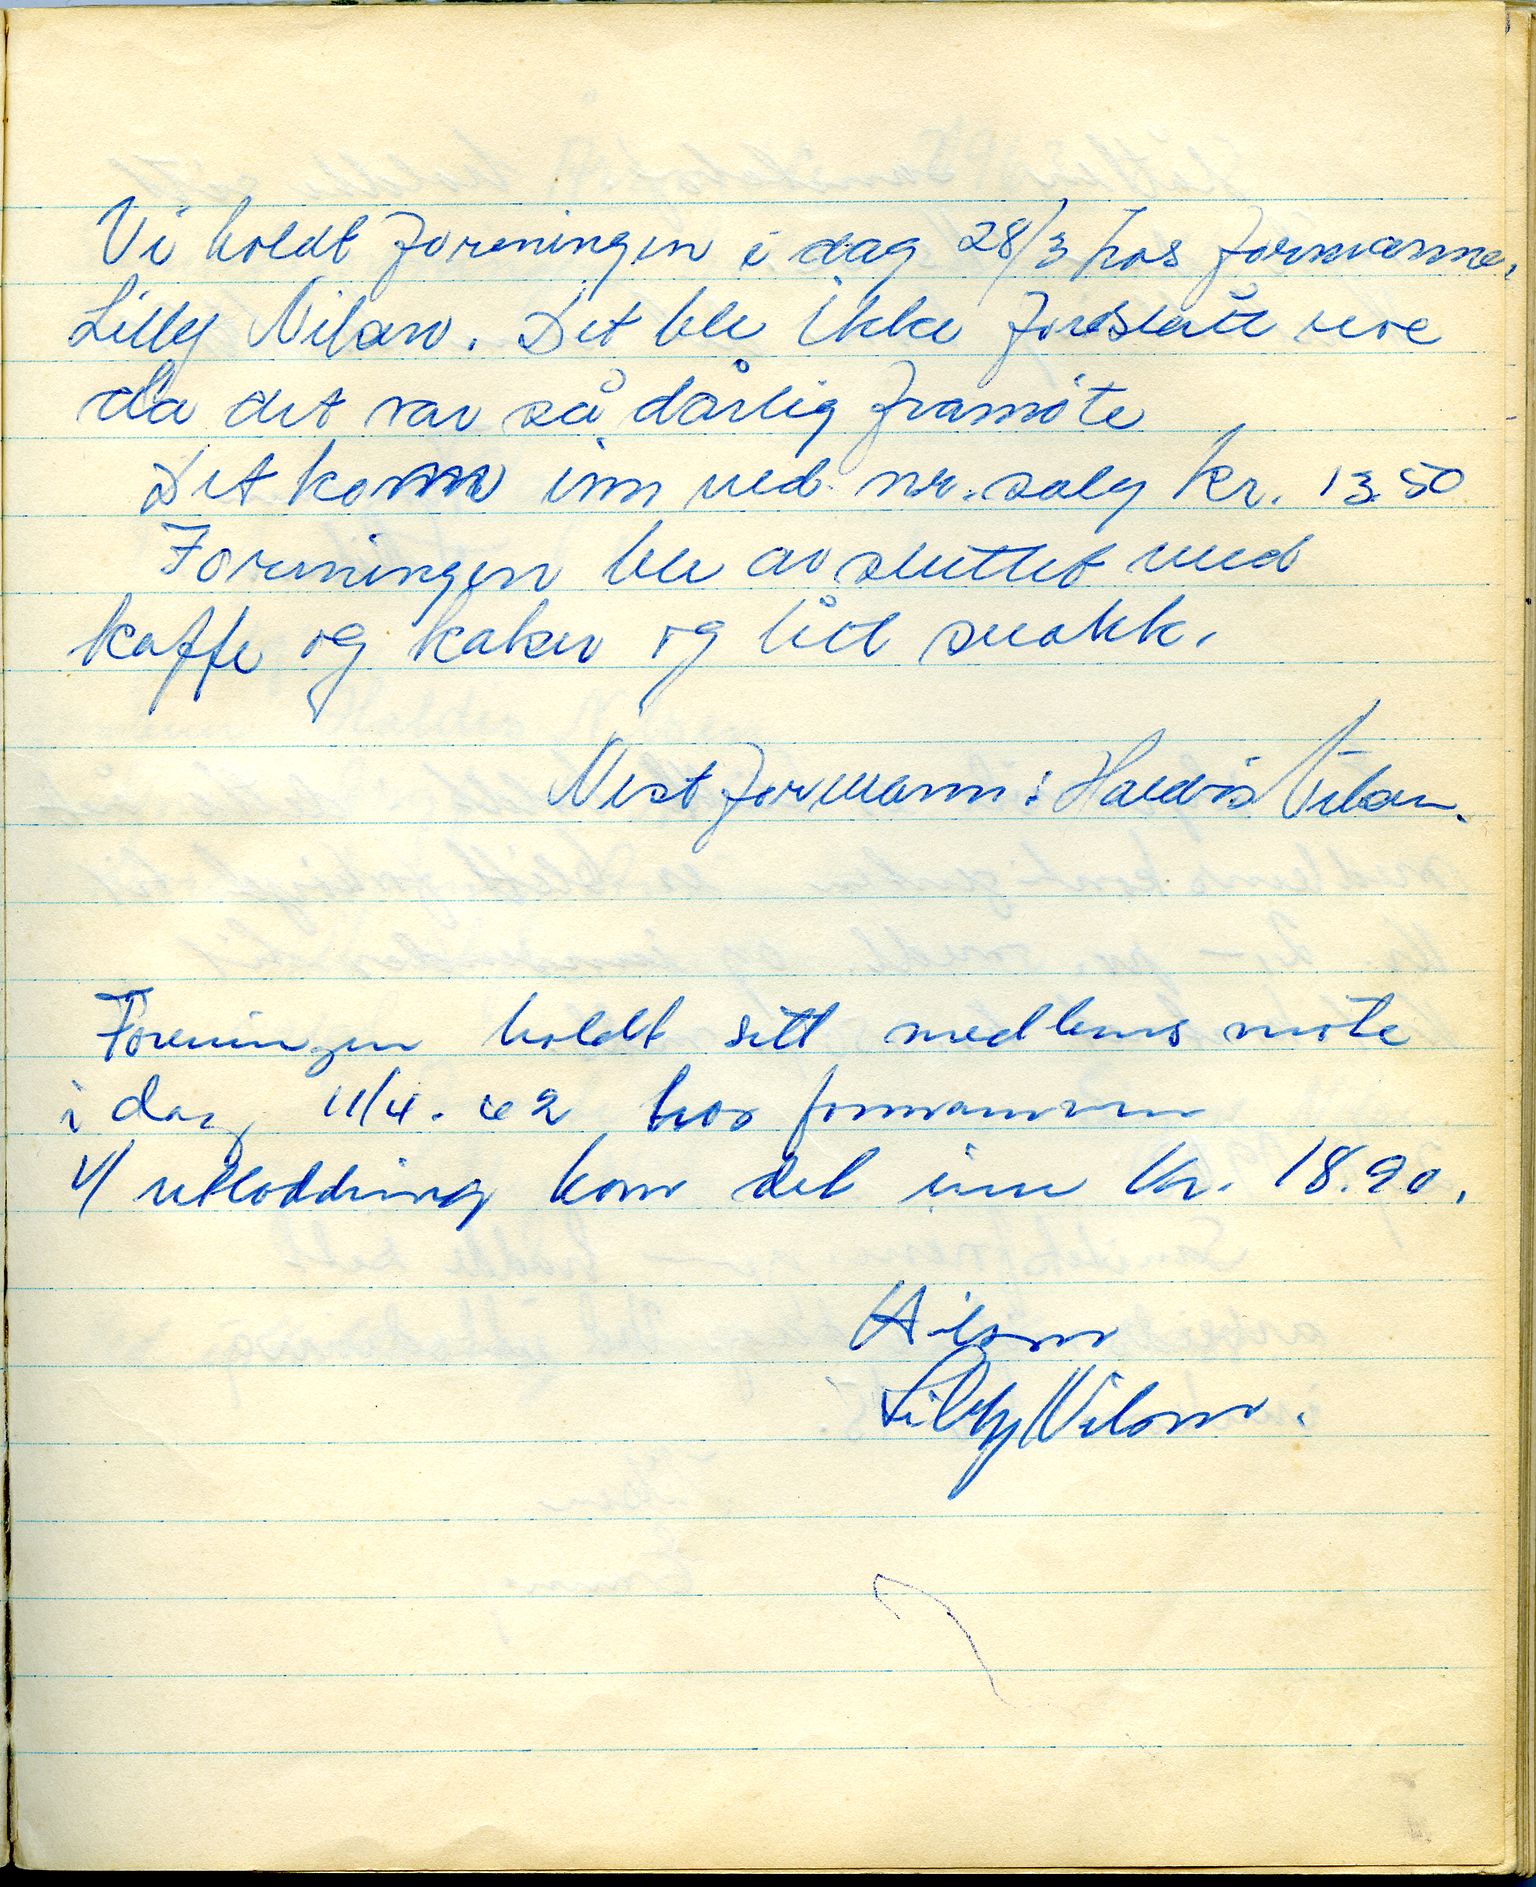 Vi holdt foreningen i dag 28/3 hos formanne.
Lilly Nilsen. Det ble ikke foreslått noe
da det var så dårlig framöte
Det kom inn ved nr. salg kr. 13.50
Foreningen ble avsluttet med
kaffe og kaker og litt snakk.
Nest formann: Haldis Nilsen.
Foreningen holdt sitt medlems möte
i dag 11/4. 62 hos formannen
v/ utloddning kom det inn kr. 18.90.
Lilly Nilsen.